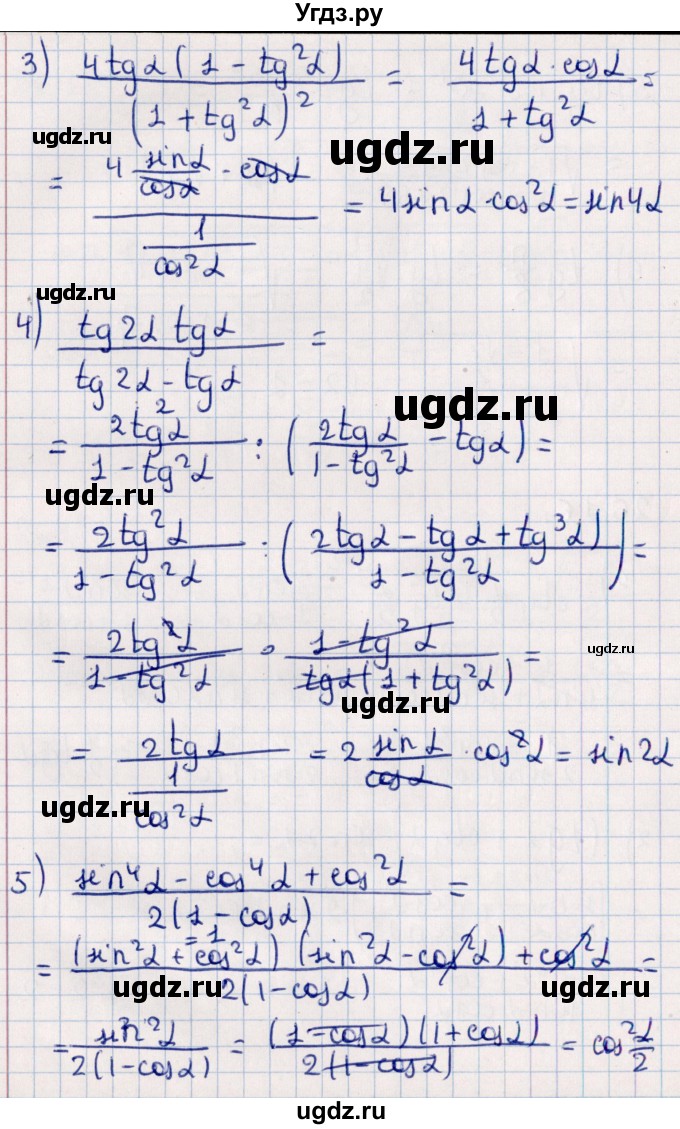 Угдз.ру
3) (4tgα(1 - tg²α)) / (1 + tg²α)² = (4tgα·cosα) / (1 + tg²α) =
ugdz.ru
ugdz.ru
= (4 sinα/cosα · cosα) / (1/cos²α) = 4sinα·cos²α = sin4α
ugdz.ru
4) (tg2α tgα) / (tg2α - tgα) =
ugdz.ru
= 2tg²α / (1 - tg²α) : (2tgα / (1 - tg²α) - tgα) =
ugdz.ru
= 2tg²α / (1 - tg²α) : ((2tgα - tgα + tg³α) / (1 - tg²α)) =
= 2tg²α / (1 - tg²α) · (1 - tg²α) / (tgα(1 + tg²α)) =
ugdz.ru
ugdz.ru
= 2tgα / (1/cos²α) = 2 sinα/cosα · cos²α = sin2α
ugdz.ru
5) (sin⁴α - cos⁴α + cos²α) / (2(1 - cosα)) =
=1
= ((sin²α + cos²α)(sin²α - cos²α) + cos²α) / (2(1 - cosα)) =
ugdz.ru
ugdz.ru
= sin²α / (2(1 - cosα)) = ((1 - cosα)(1 + cosα)) / (2(1 - cosα)) = cos² α/2
ugdz.ru